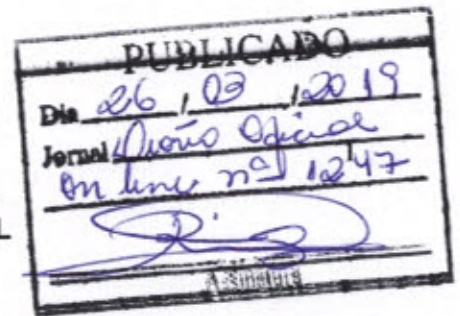 PUBLICADO
Dia 26 / 03 / 2019
Jornal Diário Oficial
On line nº 1247
Assinatura